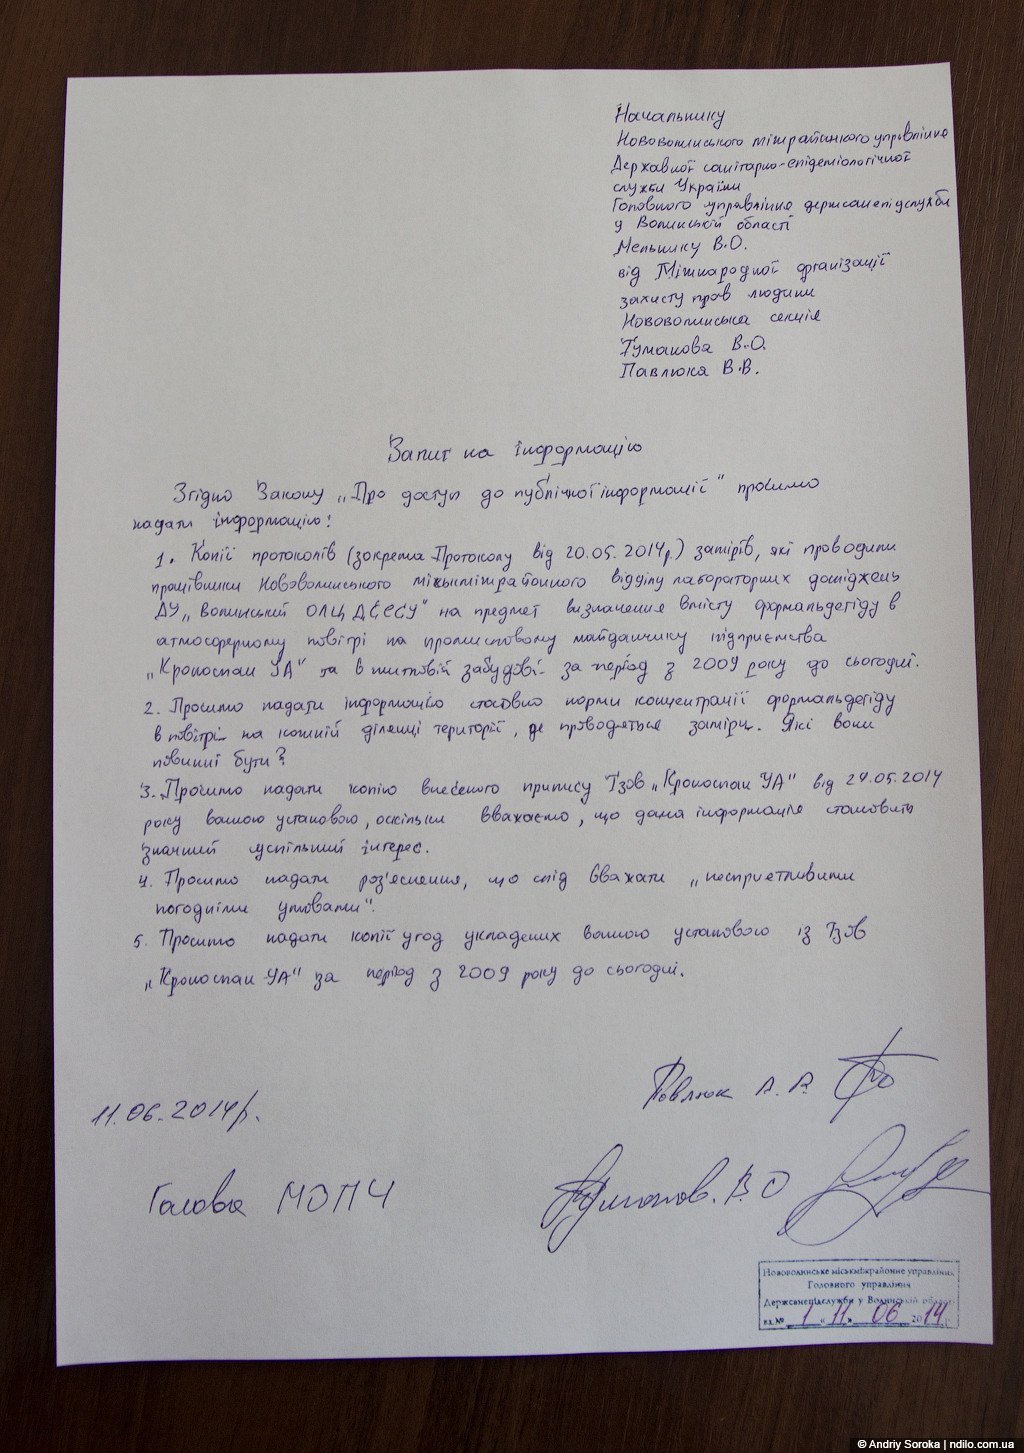 Начальнику
Нововолинського міжрайонного управління
Державної санітарно-епідеміологічної
служби України
Головного управління держсанепідслужби
у Волинській області
Мельнику В.О.
від Міжнародної організації
захисту прав людини
Нововолинська секція
Туманова В.О.
Павлюка В.В.
Запит на інформацію
Згідно Закону „Про доступ до публічної інформації" просимо
надати інформацію:
1. Копії протоколів (зокрема Протоколу від 20.05.2014р) замірів, які проводили
працівники Нововолинського міськміжрайонного відділу лабораторних досліджень
ДУ „Волинський ОЛЦ ДСЕСУ" на предмет визначення вмісту формальдегіду в
атмосферному повітрі на промисловому майданчику підприємства
„Кроноспан УА" та в житловій забудові за період з 2009 року до сьогодні.
2. Просимо надати інформацію стосовно норми концентрації формальдегіду
в повітрі на кожній ділянці території, де проводяться заміри. Які вони
повинні бути?
3. Просимо надати копію внесеного припису ТзОВ „Кроноспан УА" від 29.05.2014
року вашою установою, оскільки вважаємо, що дана інформація становить
значний суспільний інтерес.
4. Просимо надати роз'яснення, що слід вважати „несприятливими
погодніми умовами".
5. Просимо надати копії угод укладених вашою установою із ТзОВ
„Кроноспан УА" за період з 2009 року до сьогодні.
Павлюк В.В.
11.06.2014р.
Голова МОПЧ Туманов. В.О
Нововолинське міськміжрайонне управління
Головного управління
Держсанепідслужби у Волинській області
вх.№ 1 „11" 06 2014 р.
© Andriy Soroka | ndilo.com.ua